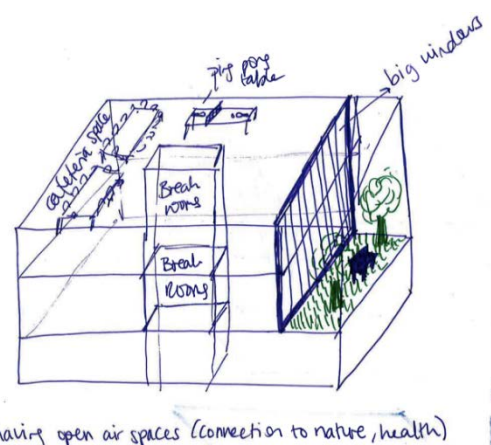 ping pong
table
big windows
cafeteria space
Break
rooms
Break
Rooms
having open air spaces (connection to nature, health)